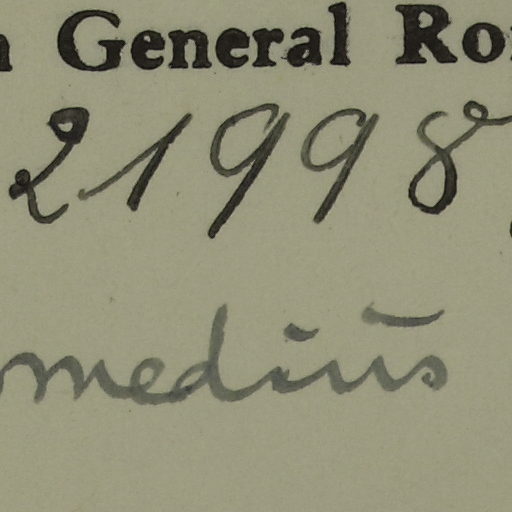 General
21998
medius